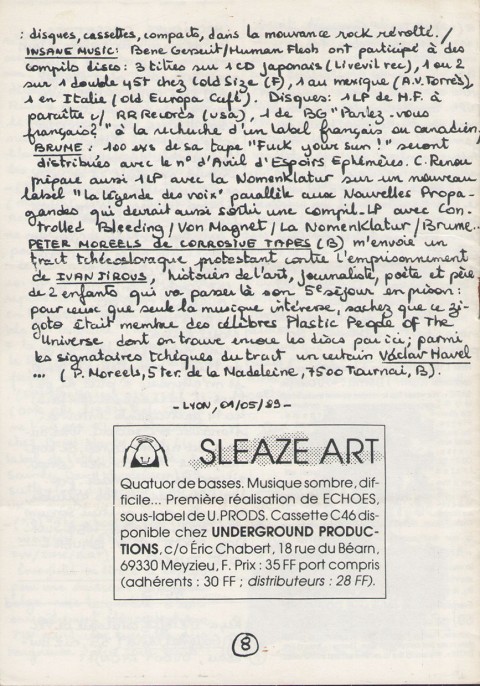 : disques, cassettes, compacts, dans la mouvance rock révolté. /
INSANE MUSIC: Bene Gesuit/Human Flesh ont participé à des
compils disco: 3 titres sur 1 CD japonais (Livevil rec), 1 ou 2
sur 1 double 45t chez Cold Size (F), 1 au mexique (A.V. Torrès),
1 en Italie (Old Europa Café). Disques: 1 LP de H.F. à
paraître c/ RRRecords (USA), 1 de BG "Parlez-vous
français?" à la recherche d'un label français ou canadien,
BRUME: 100 exs de sa tape "Fuck your sun!" seront
distribués avec le n° d'Avril d'Espoirs Ephémères. C. Renou
prépare aussi 1 LP avec la Nomenklatur sur un nouveau
label "la légende des voix" parallèle aux Nouvelles Propa-
gandes qui devrait aussi sortir une compil-LP avec Con-
trolled Bleeding / Von Magnet / La Nomenklatur / Brume...
PETER MOREELS de CORROSIVE TAPES (B) m'envoie un
tract tchécoslovaque protestant contre l'emprisonnement
de IVAN JIROUS, historien de l'art, journaliste, poète et père
de 2 enfants qui va passer là son 5e séjour en prison:
pour ceux que seule la musique intéresse, sachez que ce zi-
goto était membre des célèbres Plastic People of The
Universe dont on trouve encore les discs par ici; parmi
les signataires tchèques du tract un certain Vaclav Havel
... (P. Moreels, 5 ter. de la Madeleine, 7500 Tournai, B).
- LYON, 01/05/89 -
SLEAZE ART
Quatuor de basses. Musique sombre, dif-
ficile... Première réalisation de ECHOES,
sous-label de U.PRODS. Cassette C46 dis-
ponible chez UNDERGROUND PRODUC-
TIONS, c/o Éric Chabert, 18 rue du Béarn,
69330 Meyzieu, F. Prix : 35 FF port compris
(adhérents : 30 FF ; distributeurs : 28 FF).
8